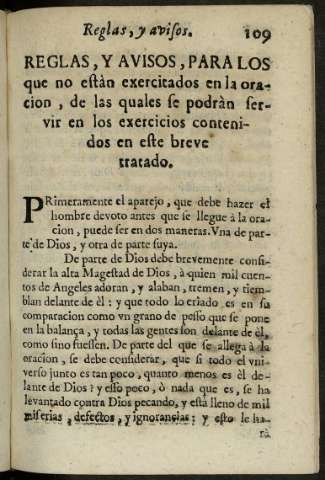 Reglas, y avisos. 109
REGLAS, Y AVISOS, PARA LOS
que no estàn exercitados en la ora-
cion, de las quales se podràn ser-
vir en los exercicios conteni-
dos en este breve
tratado.
PRimeramente el aparejo, que debe hazer el
hombre devoto antes que se llegue à la ora-
cion, puede ser en dos maneras. Vna de par-
te de Dios, y otra de parte suya.
De parte de Dios debe brevemente consi-
derar la alta Magestad de Dios, à quien mil cuen-
tos de Angeles adoran, y alaban, tremen, y tiem-
blan delante de èl: y que todo lo criado es en su
comparacion como vn grano de pesso que se pone
en la balança, y todas las gentes son delante de èl,
como sino fuessen. De parte del que se allega à la
oracion, se debe considerar, que si todo el vni-
verso junto es tan poco, quanto menos es èl de-
lante de Dios? y esso poco, ò nada que es, se ha
levantado contra Dios pecando, y està lleno de mil
miserias, defectos, y ignorancias: y esto le ha-
rà